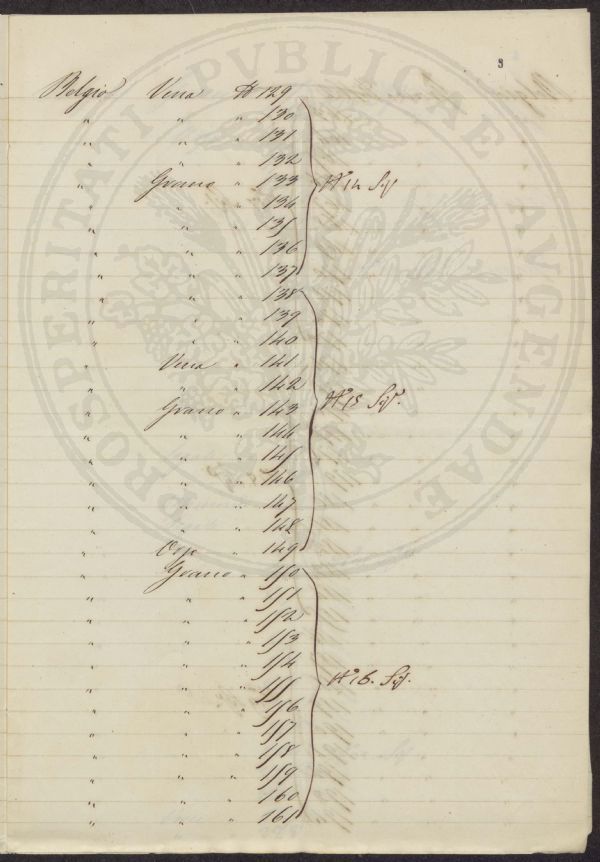 3
PROSPERITATI PVBLICAE AVGENDAE
Belgio Vena No 129
" " " 130
" " " 131
" " " 132
" Grano " 133 No 14
" " " 134
" " " 135
" " " 136
" " " 137
" " " 138
" " " 139
" " " 140
" Vena " 141
" " " 142
" Grano " 143 No 15
" " " 144
" " " 145
" " " 146
" " " 147
" " " 148
" Orzo " 149
" Grano " 150
" " " 151
" " " 152
" " " 153
" " " 154
" " " 155 No 16.
" " " 156
" " " 157
" " " 158
" " " 159
" " " 160
" " " 161